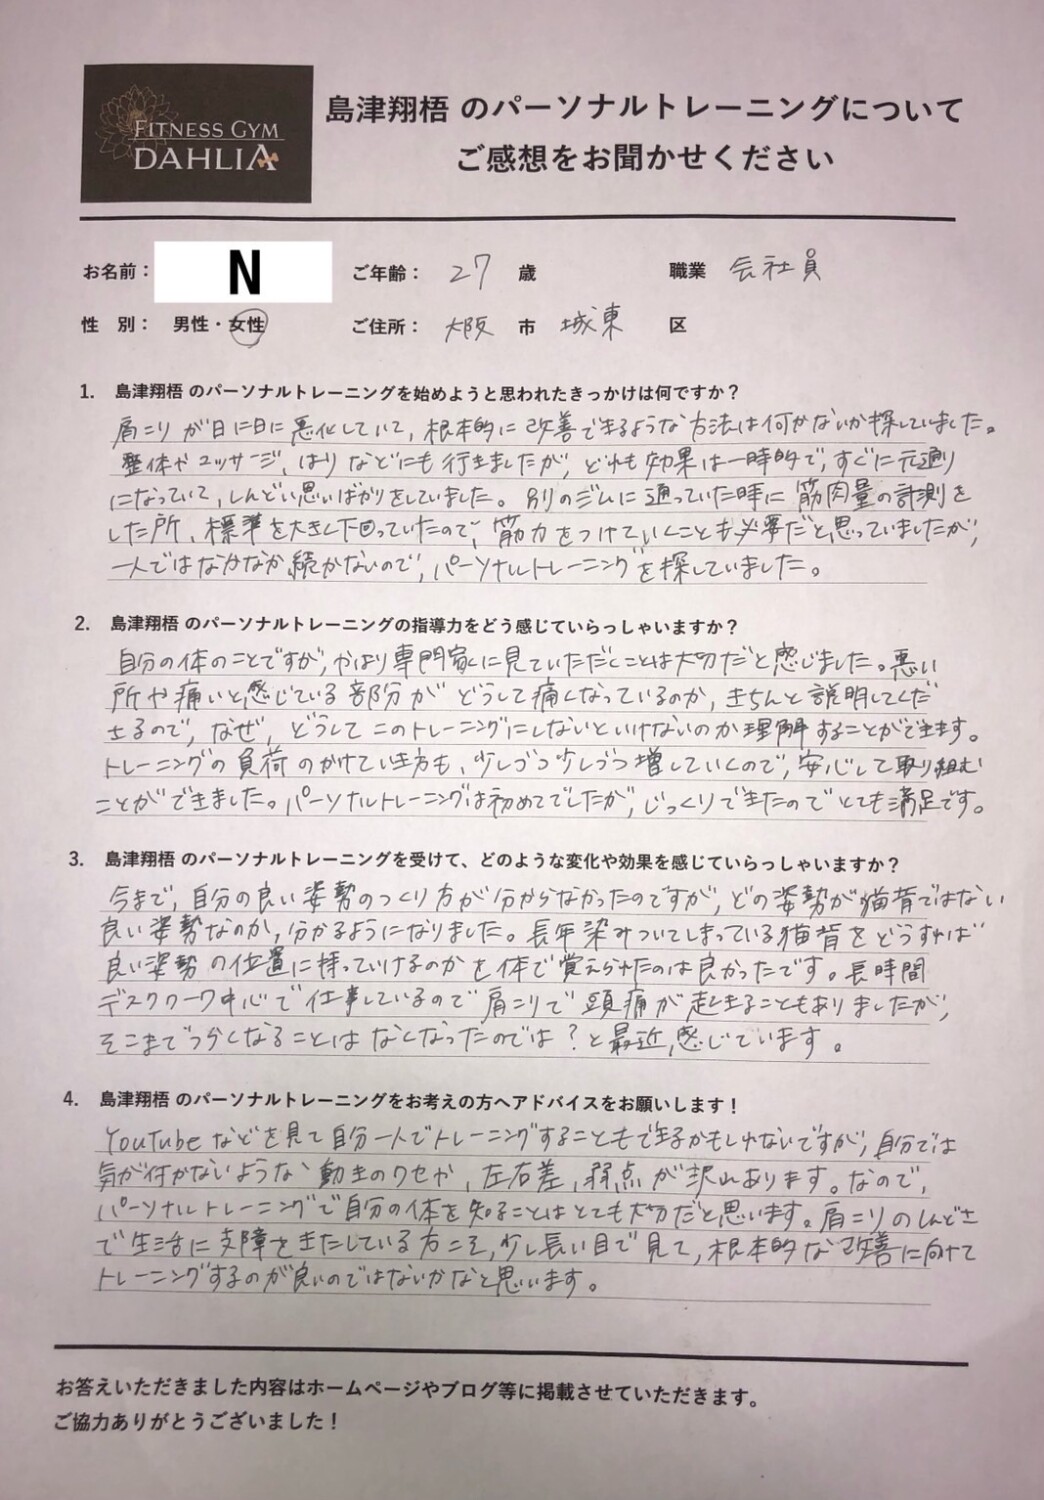 FITNESS GYM
DAHLIA
島津翔梧 のパーソナルトレーニングについて
ご感想をお聞かせください
お名前： N ご年齢： 27 歳 職業 会社員
性 別： 男性・女性 ご住所： 大阪 市 城東 区
1. 島津翔梧 のパーソナルトレーニングを始めようと思われたきっかけは何ですか？
肩こりが日に日に悪化していて、根本的に改善できるような方法は何かないか探していました。
整体やマッサージ、はりなどにも行きましたが、どれも効果は一時的で、すぐに元通り
になっていて、しんどい思いばかりをしていました。別のジムに通っていた時に筋肉量の計測を
した所、標準を大きく下回っていたので、筋力をつけていくことも必要だと思っていましたが、
一人ではなかなか続かないので、パーソナルトレーニングを探していました。
2. 島津翔梧 のパーソナルトレーニングの指導力をどう感じていらっしゃいますか？
自分の体のことですが、やはり専門家に見ていただくことは大切だと感じました。悪い
所や痛いと感じている部分がどうして痛くなっているのか、きちんと説明してくだ
さるので、なぜ、どうしてこのトレーニングにしないといけないのか理解することができます。
トレーニングの負荷のかけていき方も、少しづつ少しづつ増していくので、安心して取り組む
ことができました。パーソナルトレーニングは初めてでしたが、じっくりできたのでとても満足です。
3. 島津翔梧 のパーソナルトレーニングを受けて、どのような変化や効果を感じていらっしゃいますか？
今まで、自分の良い姿勢のつくり方が分からなかったのですが、どの姿勢が猫背ではない
良い姿勢なのか、分かるようになりました。長年染みついてしまっている猫背をどうすれば
良い姿勢の位置に持っていけるのかを体で覚えられたのは良かったです。長時間
デスクワーク中心で仕事しているので肩こりで頭痛が起きることもありましたが、
そこまでつらくなることはなくなったのでは？と最近、感じています。
4. 島津翔梧 のパーソナルトレーニングをお考えの方へアドバイスをお願いします！
YouTubeなどを見て自分一人でトレーニングすることもできるかもしれないですが、自分では
気が付かないような動きのクセや、左右差、弱点が沢山あります。なので、
パーソナルトレーニングで自分の体を知ることはとても大切だと思います。肩こりのしんどさ
で生活に支障をきたしている方こそ、少し長い目で見て、根本的な改善に向けて
トレーニングするのが良いのではないかなと思います。
お答えいただきました内容はホームページやブログ等に掲載させていただきます。
ご協力ありがとうございました！